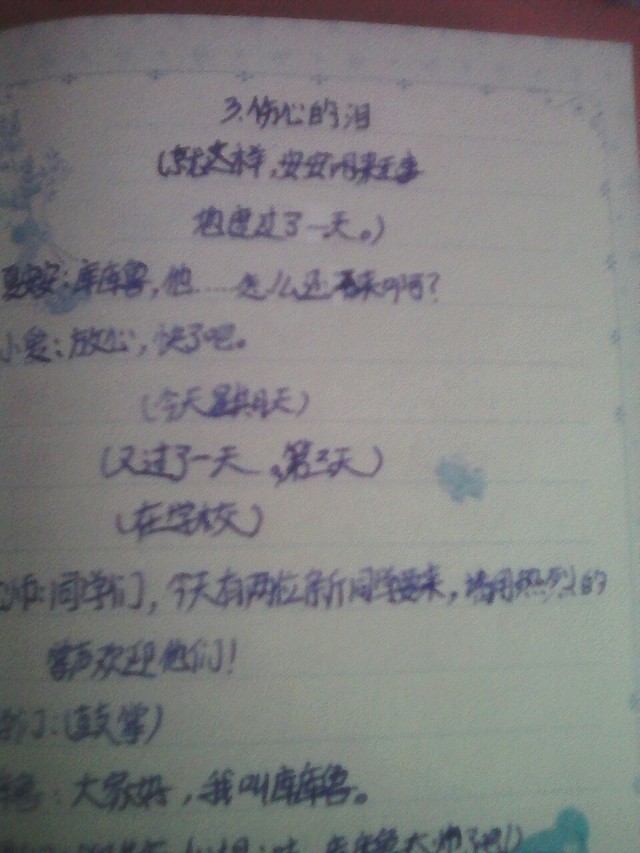 3.伤心的泪
(就这样,安安闲来无事
地度过了一天。)
夏安安:库库鲁,他……怎么还不来啊?
小爱:放心,快了吧。
(今天是第1天)
(又过了一天,第2天)
(在学校)
师:同学们,今天有两位新同学要来,请用热烈的
掌声欢迎他们!
们:(鼓掌)
鲁:大家好,我叫库库鲁。